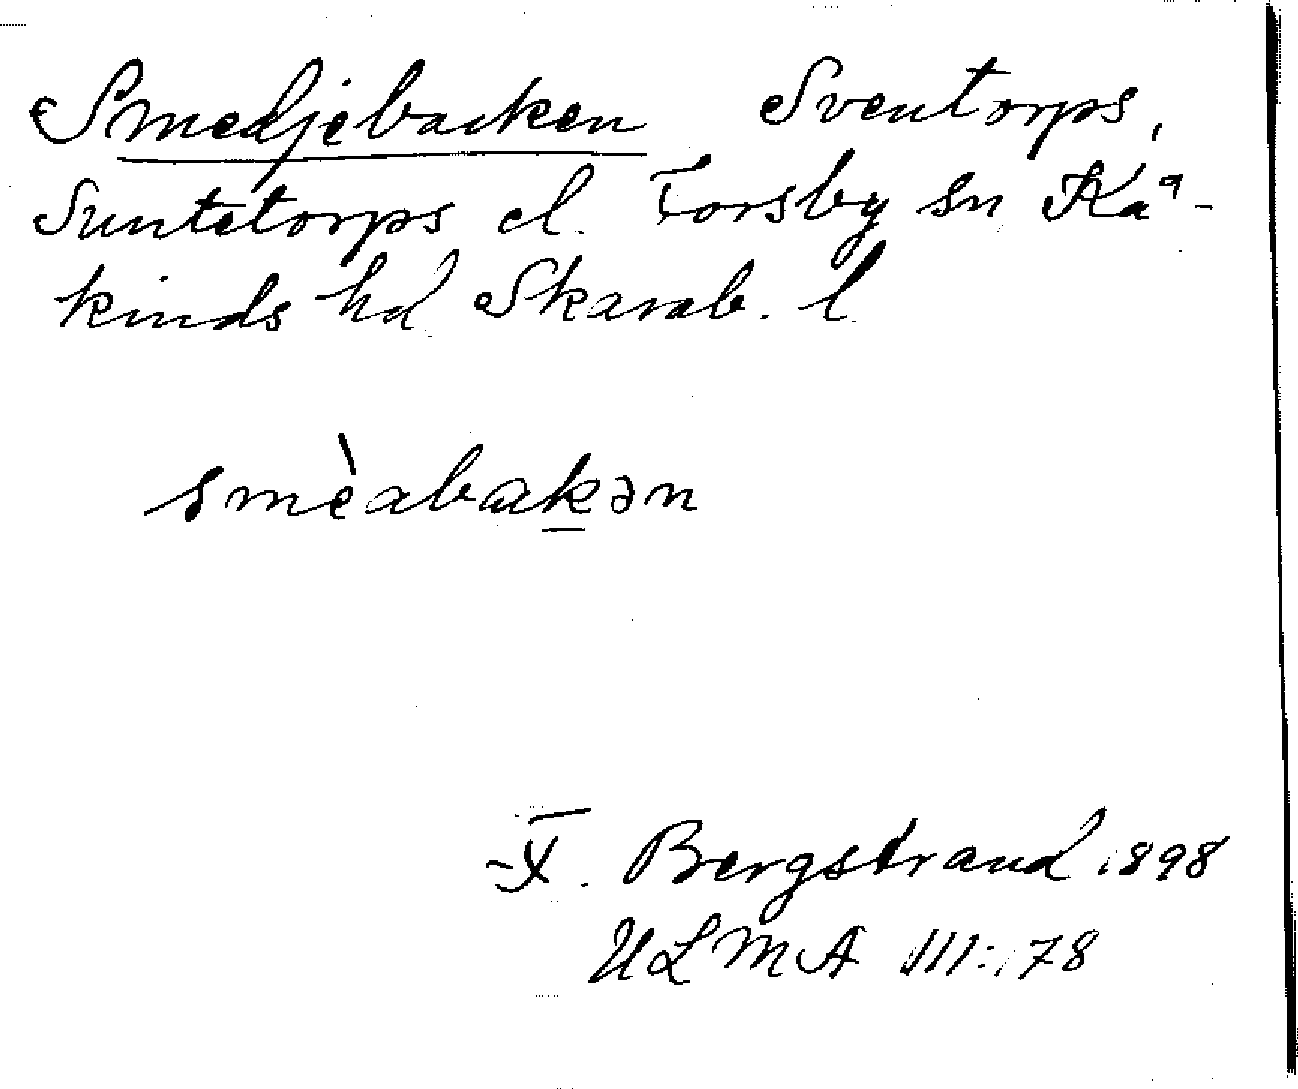 Smedjebacken Sventorps,
Suntetorps el. Forsby sn Kå-
kinds hd Skarab. l
smèabakən
F. Bergstrand 1898
ULMA 111:178